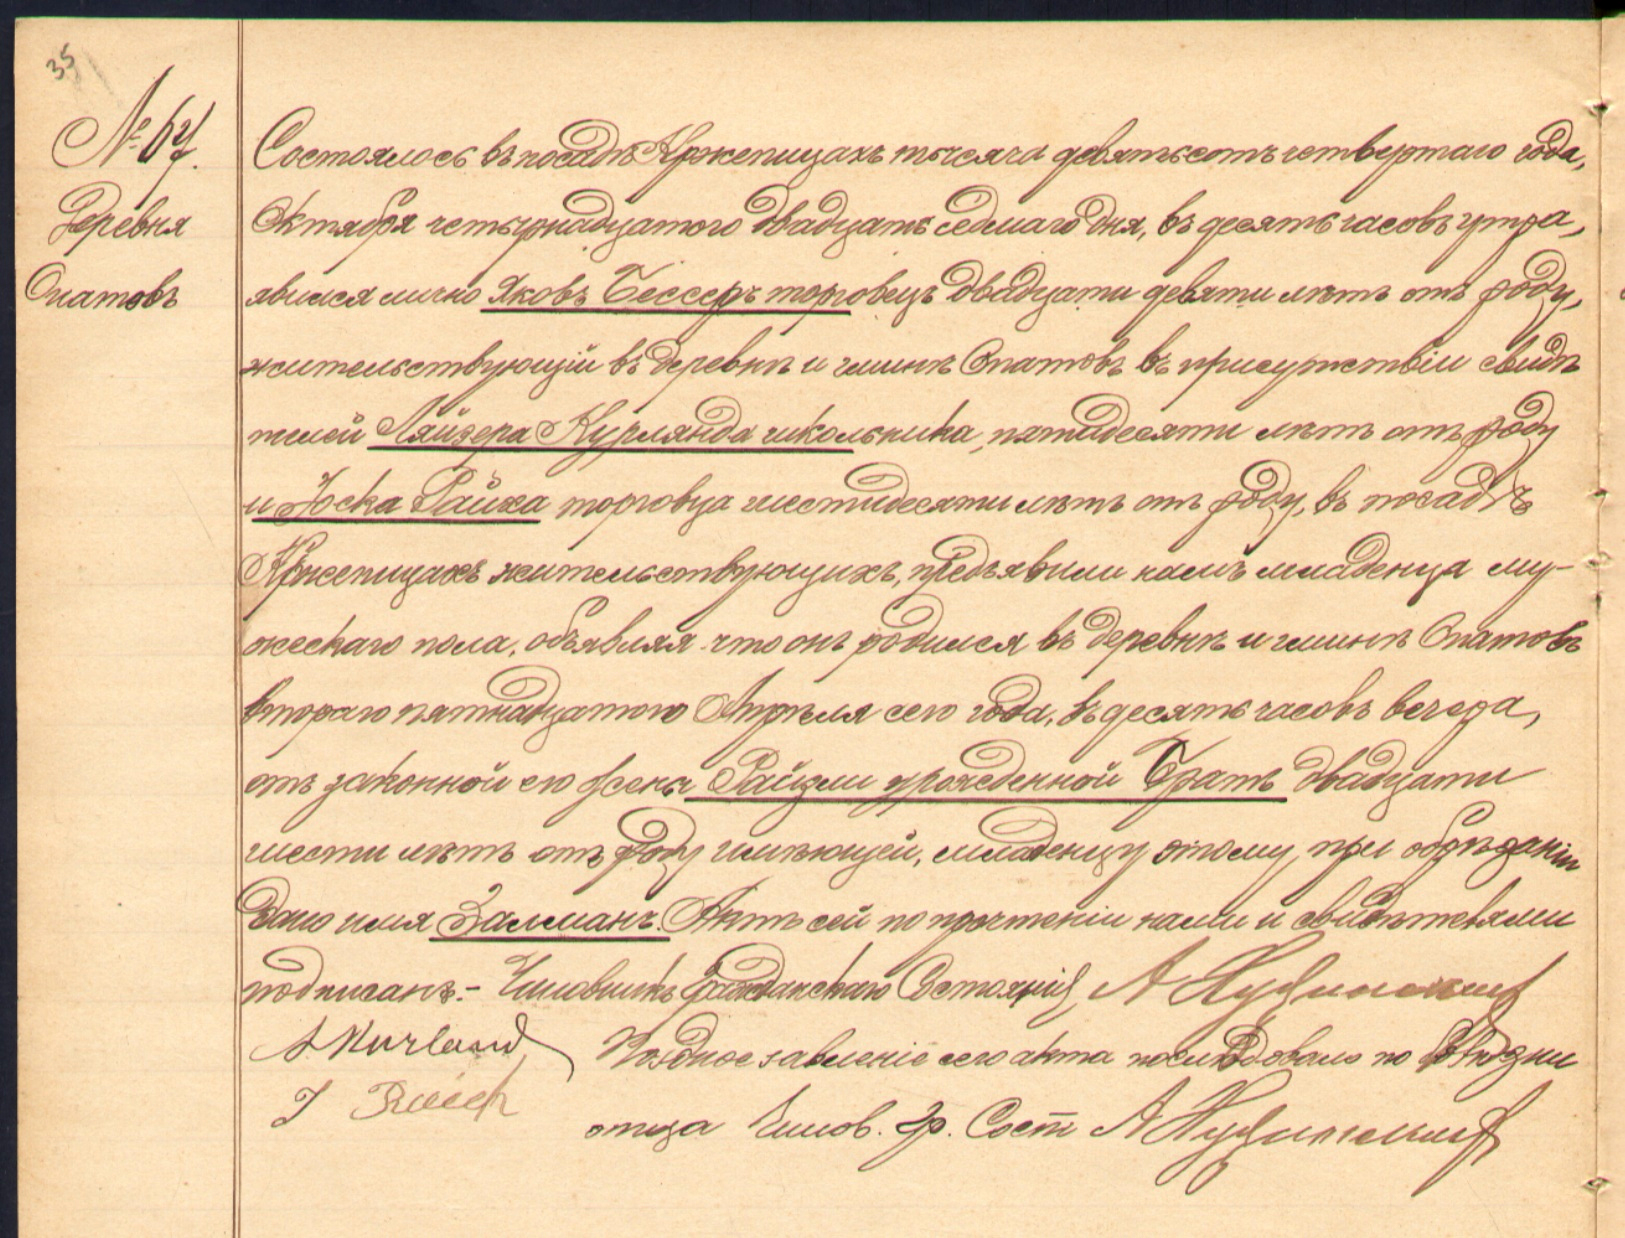 35
№ 67.
Деревня
Опатовъ
Состоялось въ посадѣ Кржепицахъ тысяча девятьсотъ четвертаго года,
Октября четырнадцатого двадцать седмаго дня, въ десять часовъ утра,
явился лично Яковъ Бессеръ торговецъ двадцати девяти лѣтъ отъ роду,
жительствующій въ деревнѣ и гминѣ Опатовъ въ присутствіи свидѣ
телей Ляйзера Курлянда школьника, пятидесяти лѣтъ отъ роду
и Іоска Райха торговца шестидесяти лѣтъ отъ роду, въ посадѣ
Кржепицахъ жительствующихъ, предъявили намъ младенца му-
жескаго пола, объявляя что онъ родился въ деревнѣ и гминѣ Опатовъ
втораго пятнадцатого Апрѣля сего года, въ десять часовъ вечера,
отъ законной его жены Райзли урожденной Братъ двадцати
шести лѣтъ отъ роду имѣющей, младенцу этому, при обрѣзаніи
дано имя Залманъ. Актъ сей по прочтеніи нами и свидѣтелями
подписанъ.- Чиновникъ Гражданскаго Состоянія,
A Kurland
J Reich
Позднее заявленіе сего акта послѣдовало по
отца Чинов. Гр. Сост